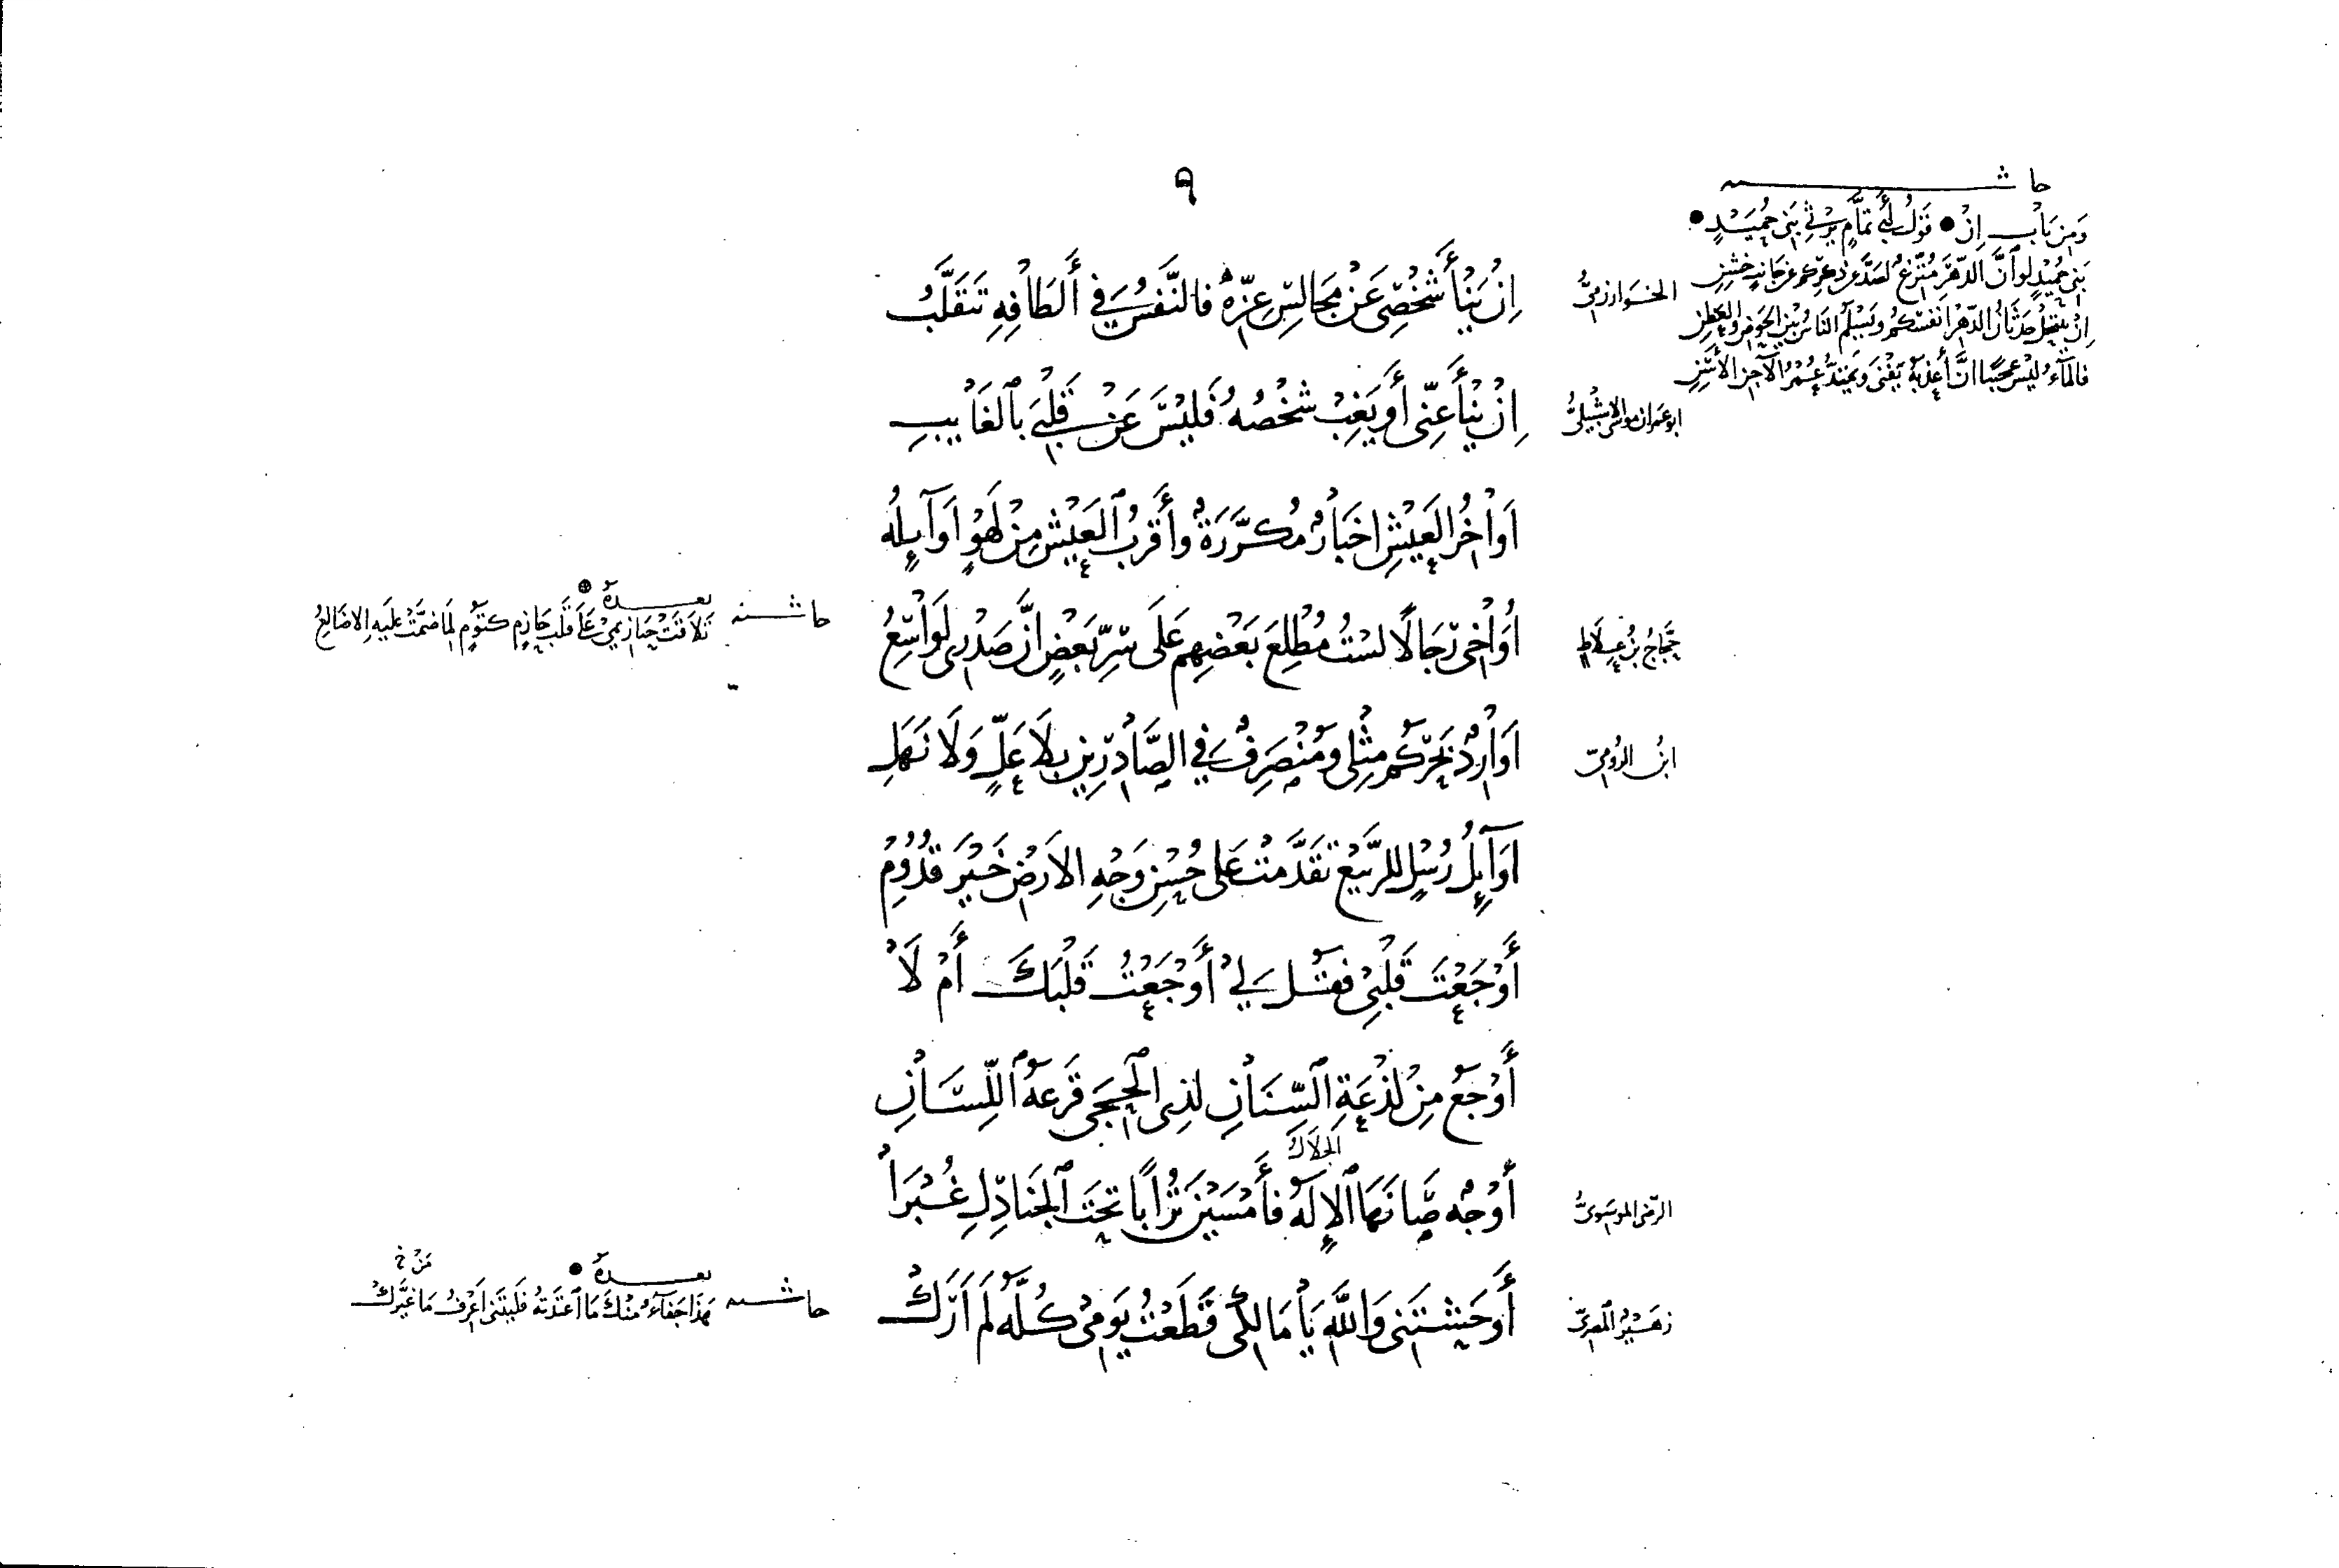 ٩
حاشيه
وَمِن بَاب اِن • قَولُ أَبِي تمَّامٍ يَرثي بَنِي حُمَيدٍ •
بَنِي حُمَيدٍ لَو أنَّ الدّهرَ مُتَّزعٌ لصَدَّ عن ذكركم عَن جَانبٍ خَشِنِ
اِن يَنتَخِل حَدثَانُ الدّهرِ انفسَكُم وَيَسلَم النّاسُ بَينَ الحَوضِ والعَطَنِ
فالمآءُ لَيسَ عَجيبًا انَّ أعذبَهُ يَفنَى وَيَمتدُّ عُمرُ الآجِنِ الأسِنِ
الخوارزميُّ
اِن يَنأَ شَخصِي عَن مجَالسِ عِزّهِ فالنَّفسُ في أَلطَافِهِ تَتَقَلَّبُ
ابو عمران موسى الاشبيليُّ
اِن يَنأَ عنِّى أَو يَغِب شَخصُهُ فَليسَ عَن قَلبِيَ بالغَايِبِ
اَوَاخرُ العَيشِ اخبَارٌ مُكرَّرَةٌ وأَقرَبُ العَيشِ مِن لَهوٍ اَوَآيلُه
حَجَّاجُ بنُ عِلَاطٍ
اُوَاخى رجَالًا لستُ مُطْلِعَ بَعضِهِم عَلَى سِرِّ بَعضٍ انَّ صَدرى لَوَاسِعُ
حاشيه بعده •
تَلاقَت حَيَازِيمي عَلَى قَلبِ حَازِمٍ كَتُومٍ لِمَا ضمَّت عَلَيهِ الاضَالِعُ
ابنُ الرُّوميِّ
اَوَارِدٌ بَحرَكم مثلى وَمُنصَرِفٌ في الصَّادرِين بلَا عَلٍّ وَلَا نَهَلِ
اَوَآيلُ رُسْلٍ للرَّبيعِ تَقَدَّمَت عَلى حُسنِ وَجهِ الارضِ خَيرَ قدُومِ
أَوجَعتَ قَلبِى فقل لِي أَوجَعتُ قَلبَكَ أَم لَا
أَوجَعُ مِن لَذعَةِ السِّنَانِ لذِى الحِجَى قَرعَةُ اللِّسَانِ
الرضى الموسوىُّ
أَوجُهٌ صَانَهَا الإلَهُ فأَمسَينَ تُرَابًا تحتَ الجَنَادِلِ غُبرَا
الجلَالُ
زهَيرُ المصرىّ
أَوحَشتَنِى وَاللّهِ يَا مَالِكِى قَطَعتُ يَومِى كُلَّهُ لَم اَرَك
حاشيه بعده •
هَذَا جَفآءٌ مِنكَ مَا اعتَدتُهُ فَلَيتَنى اَعرِفُ مَا غيَّرَك
مَن خ